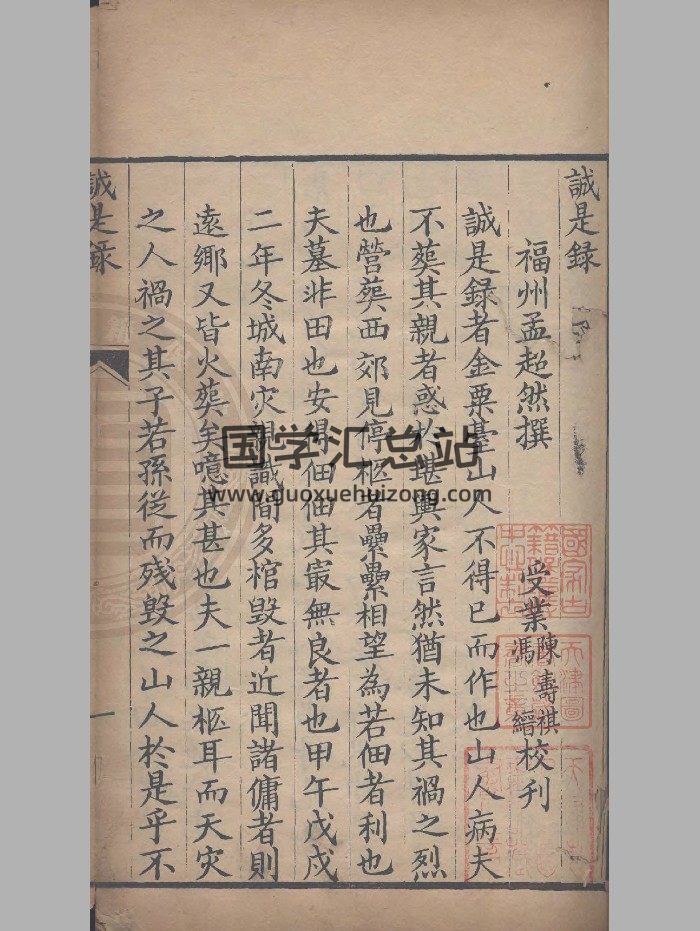 誠是録
福州孟超然撰 受業陳壽祺馮縉校刋
誠是録者金粟臺山人不得已而作也山人病夫
不葬其親者惑於堪輿家言然猶未知其禍之烈
也營葬西郊見停柩者纍纍相望為若佃者利也
夫墓非田也安得佃佃其寂無良者也甲午戊戌
二年冬城南灾親識間多棺毁者近聞諸傭者則
遠鄉又皆火葬矣噫其甚也夫一親柩耳而天灾
之人禍之其子若孫從而殘毁之山人於是乎不
誠是録
一
国学汇总站
www.guoxuehuizong.com